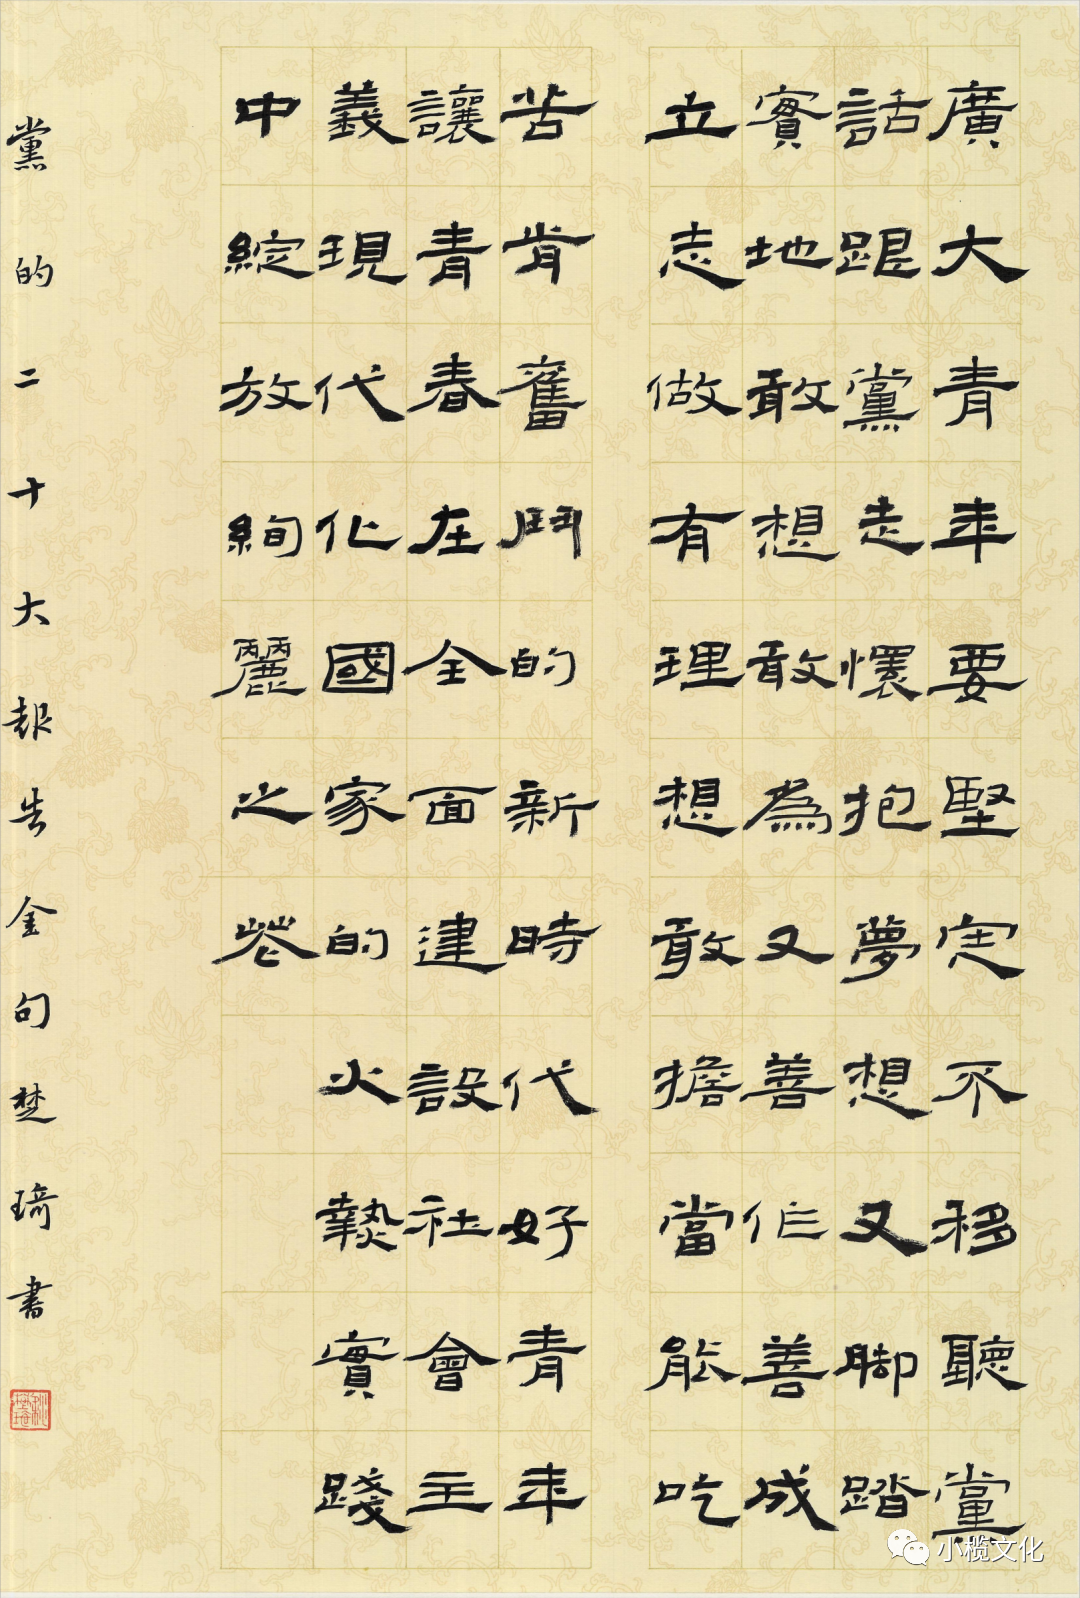 廣大青年要堅定不移聽黨
話跟黨走懷抱夢想又脚踏
實地敢想敢為又善作善成
立志做有理想敢擔當能吃
苦肯奮鬥的新時代好青年
讓青春在全面建設社會主
義現代化國家的火熱實踐
中綻放絢麗之花
黨的二十大報告金句楚琦書
小榄文化